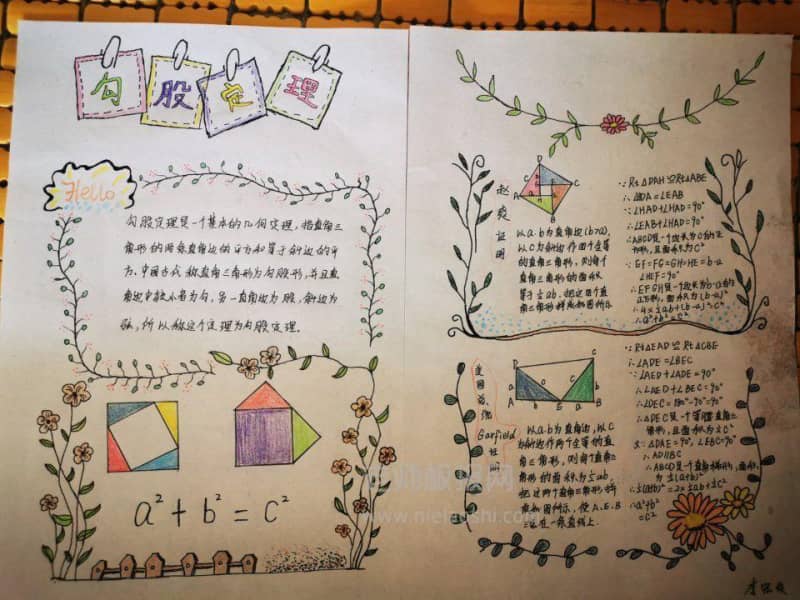 勾股定理
Hello
勾股定理是一个基本的几何定理，指直角三
角形的两条直角边的平方和等于斜边的平
方。中国古代称直角三角形为勾股形，并且直
角边中较小者为勾，另一直角边为股，斜边为
弦，所以称这个定理为勾股定理。
a²+b²=c²
赵爽证明
以a.b为直角边(b>a),
以c为斜边作四个全等
的直角三角形，则每个
直角三角形的面积
等于½ab.把这四个直
角三角形拼成如图所示
∵Rt△DAH≌Rt△ABE
∴∠HDA=∠EAB
∵∠HAD+∠HAD=90°
∴∠EAB+∠HAD=90°
∴ABCD是一个边长为c的正
方形，面积为c²
∵EF=FG=GH=HE=b-a
∠HEF=90°
∴EFGH是一个边长为b-a的
正方形，面积为(b-a)²
∴4×½ab+(b-a)²=c²
∴a²+b²=c²
D C
a c c b
A b E a B
Garfield
证明
以a.b为直角边，以c
为斜边作两个全等的直
角三角形，则每个直角
三角形的面积为½ab.
把这两个直角三角形拼
成如图所示，使A.E.B
三点在一条直线上.
∵Rt△EAD≌Rt△CBE
∴∠ADE=∠BEC
∵∠AED+∠ADE=90°
∴∠AED+∠BEC=90°
∴∠DEC=180°-90°=90°
∴△DEC是一个等腰直角三
角形，且面积为½c²
又∵∠DAE=90°,∠EBC=90°
∴AD∥BC
∴ABCD是一个直角梯形，面积
为½(a+b)²
∴½(a+b)²=2×½ab+½c²
∴a²+b²
=c²